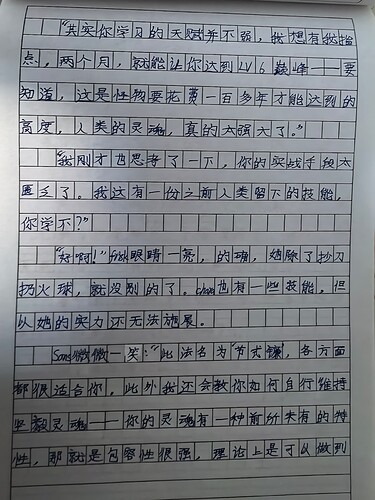 “其实你学习的天赋并不弱，我想有我指
点，两个月，就能让你达到LV6巅峰——要
知道，这是怪物要花费一百多年才能达到的
高度，人类的灵魂，真的太强大了。”
“我刚才也思考了一下，你的实战手段太
匮乏了。我这有一份之前人类留下的技能，
你学不？”
“好啊！”Frisk眼睛一亮，的确，她除了抄刀
扔火球，就没别的了。Chara也有一些技能，但
以她的实力还无法施展。
Sans微微一笑：“此法名为‘节式镰’，各方面
都很适合你，此外我还会教你如何自行维持
坚毅灵魂——你的灵魂有一种前所未有的特
性，那就是包容性很强，理论上是可以做到